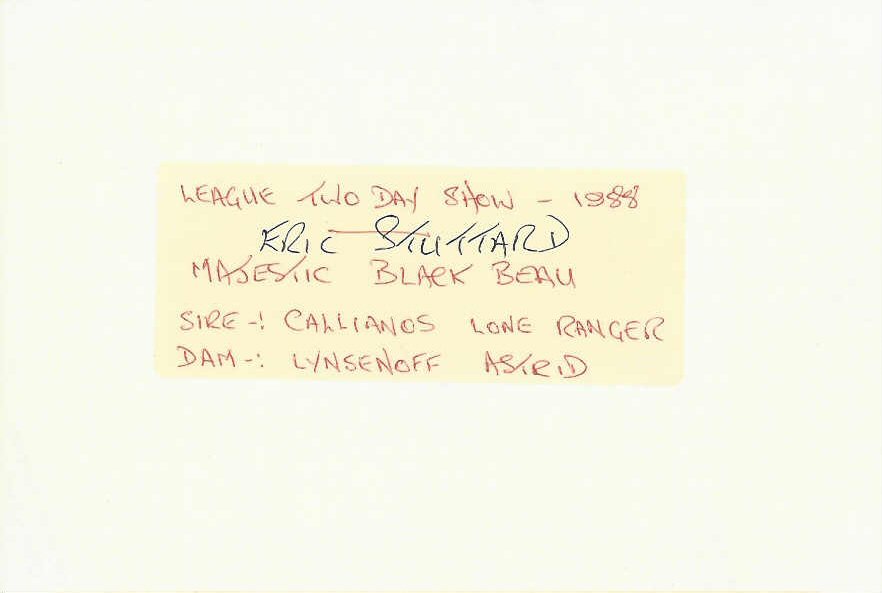 LEAGUE TWO DAY SHOW - 1988
ERIC STUTTARD
MAJESTIC BLACK BEAU
SIRE -: CALLIANOS LONE RANGER
DAM -: LYNSENOFF ASTRID